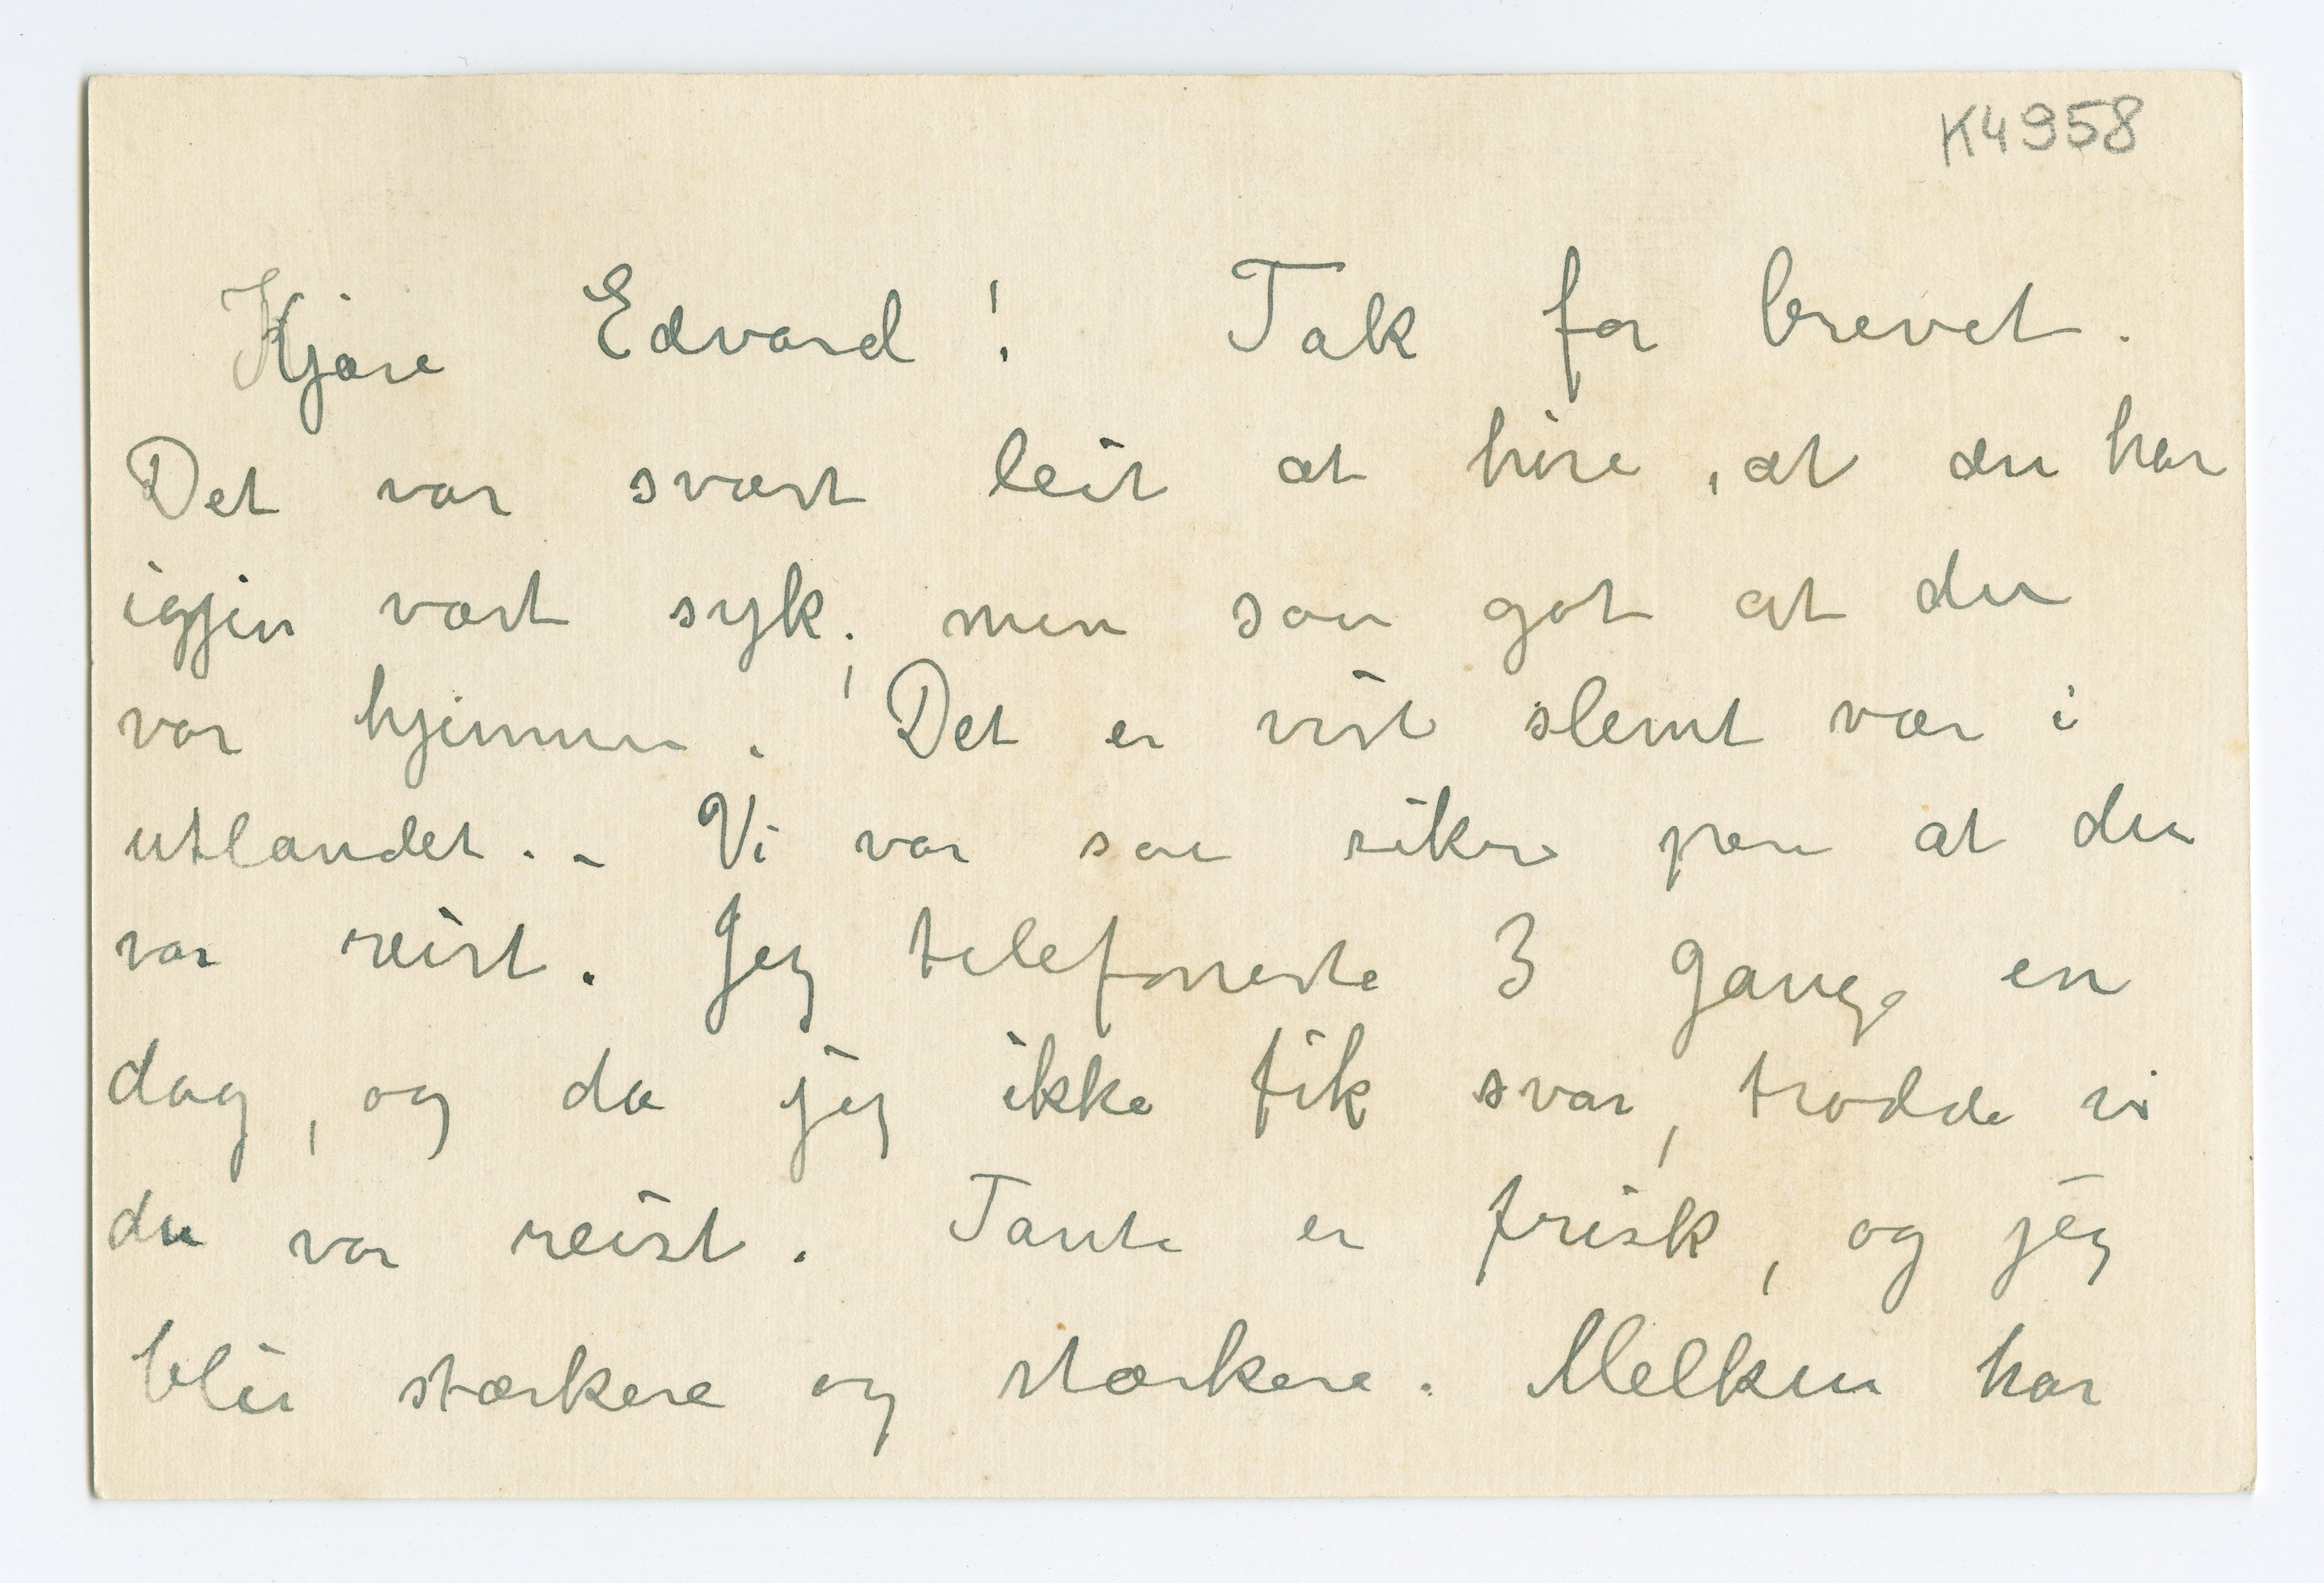 K4958
Kjære Edvard! Tak for brevet.
Det var svært leit at høre, at du har
igjen vært syk; men saa got at du
var hjemme. Det er vist slemt vær i
utlandet. – Vi var saa sikre paa at du
var reist. Jeg telefonerte 3 gange en
dag, og da jeg ikke fik svar, trodde vi
du var reist. Tante er frisk, og jeg
blir stærkere og stærkere. Melken har